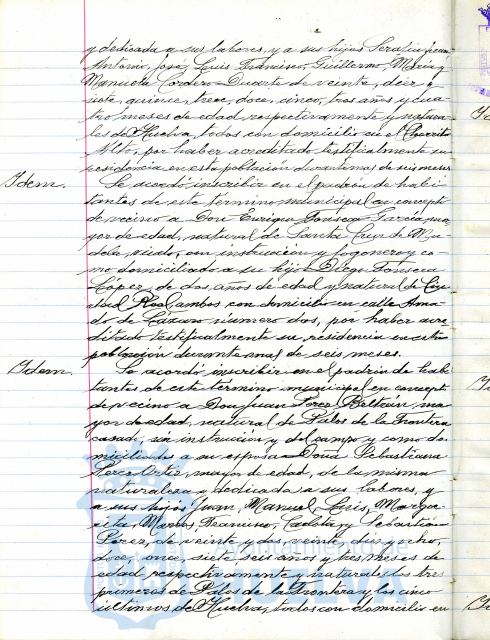 y dedicada a sus labores, y a sus hijos Serafin, Juan
Antonio, José, Luis, Francisco, Guillermo, Maria y
Manuela Cordero Duarte de veinte, diez y
siete, quince, trece, doce, cinco, tres años y cua-
tro meses de edad respectivamente y natura-
les de Huelva, todos con domicilio en el
Alto, por haber acreditado testificalmente su
residencia en esta población durante mas de seis meses.
Idem. Se acordó inscribir en el padrón de habi-
tantes de este término municipal en concepto
de vecino a Don Enrique Fonseca Garcia, ma-
yor de edad, natural de Santa Cruz de Mu-
dela, viudo, con instrucción y fogonero y co-
mo domiciliado a su hijo Diego Fonseca
López, de dos años de edad y natural de Ciu-
dad Real, ambos con domicilio en calle Ama-
do de Lázaro número dos, por haber acre-
ditado testificalmente su residencia en esta
población durante mas de seis meses.
Idem. Se acordó inscribir en el padrón de habi-
tantes de este término municipal en concepto
de vecino a Don Juan Perez Beltrán, ma-
yor de edad, natural de Palos de la Frontera
casado, sin instrucción y del campo y como do-
miciliados a su esposa Doña Sebastiana
Perez Ortiz, mayor de edad, de la misma
naturaleza y dedicada a sus labores, y
a sus hijos Juan, Manuel, Luis, Marga-
rita, Francisco, Carlota y Sebastian
Pérez, de veinte y dos, veinte, diez y ocho,
doce, once, siete, seis años y tres meses de
edad respectivamente y naturales los tres
primeros de Palos de la Frontera y los cinco
últimos de Huelva, todos con domicilio en
Ayuntamiento de
HUELVA